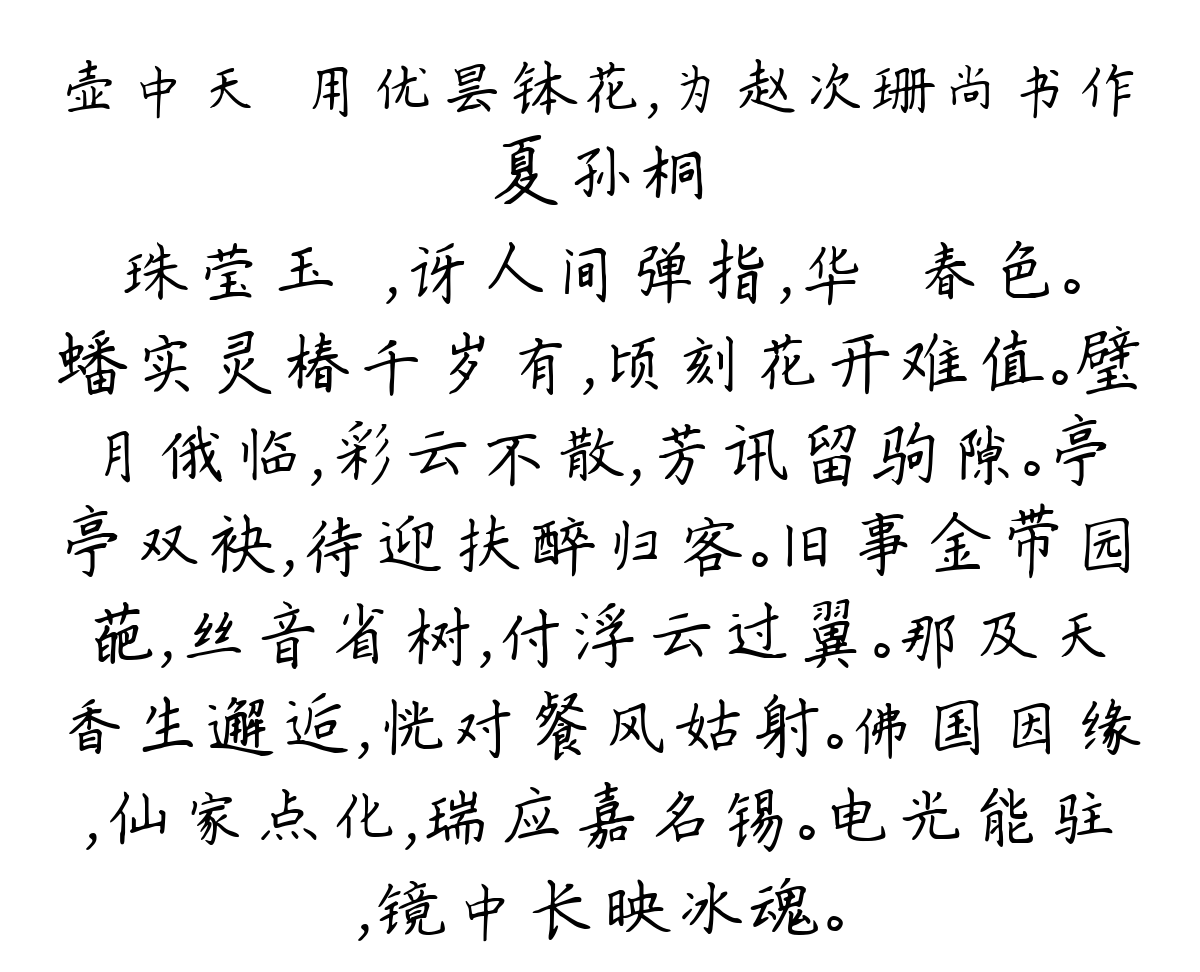 壶中天 用优昙钵花,为赵次珊尚书作
夏孙桐
珠莹玉 ,讶人间弹指,华 春色。
蟠实灵椿千岁有,顷刻花开难值。璧
月俄临,彩云不散,芳讯留驹隙。亭
亭双袂,待迎扶醉归客。旧事金带园
葩,丝音省树,付浮云过翼。那及天
香生邂逅,恍对餐风姑射。佛国因缘
,仙家点化,瑞应嘉名锡。电光能驻
,镜中长映冰魂。